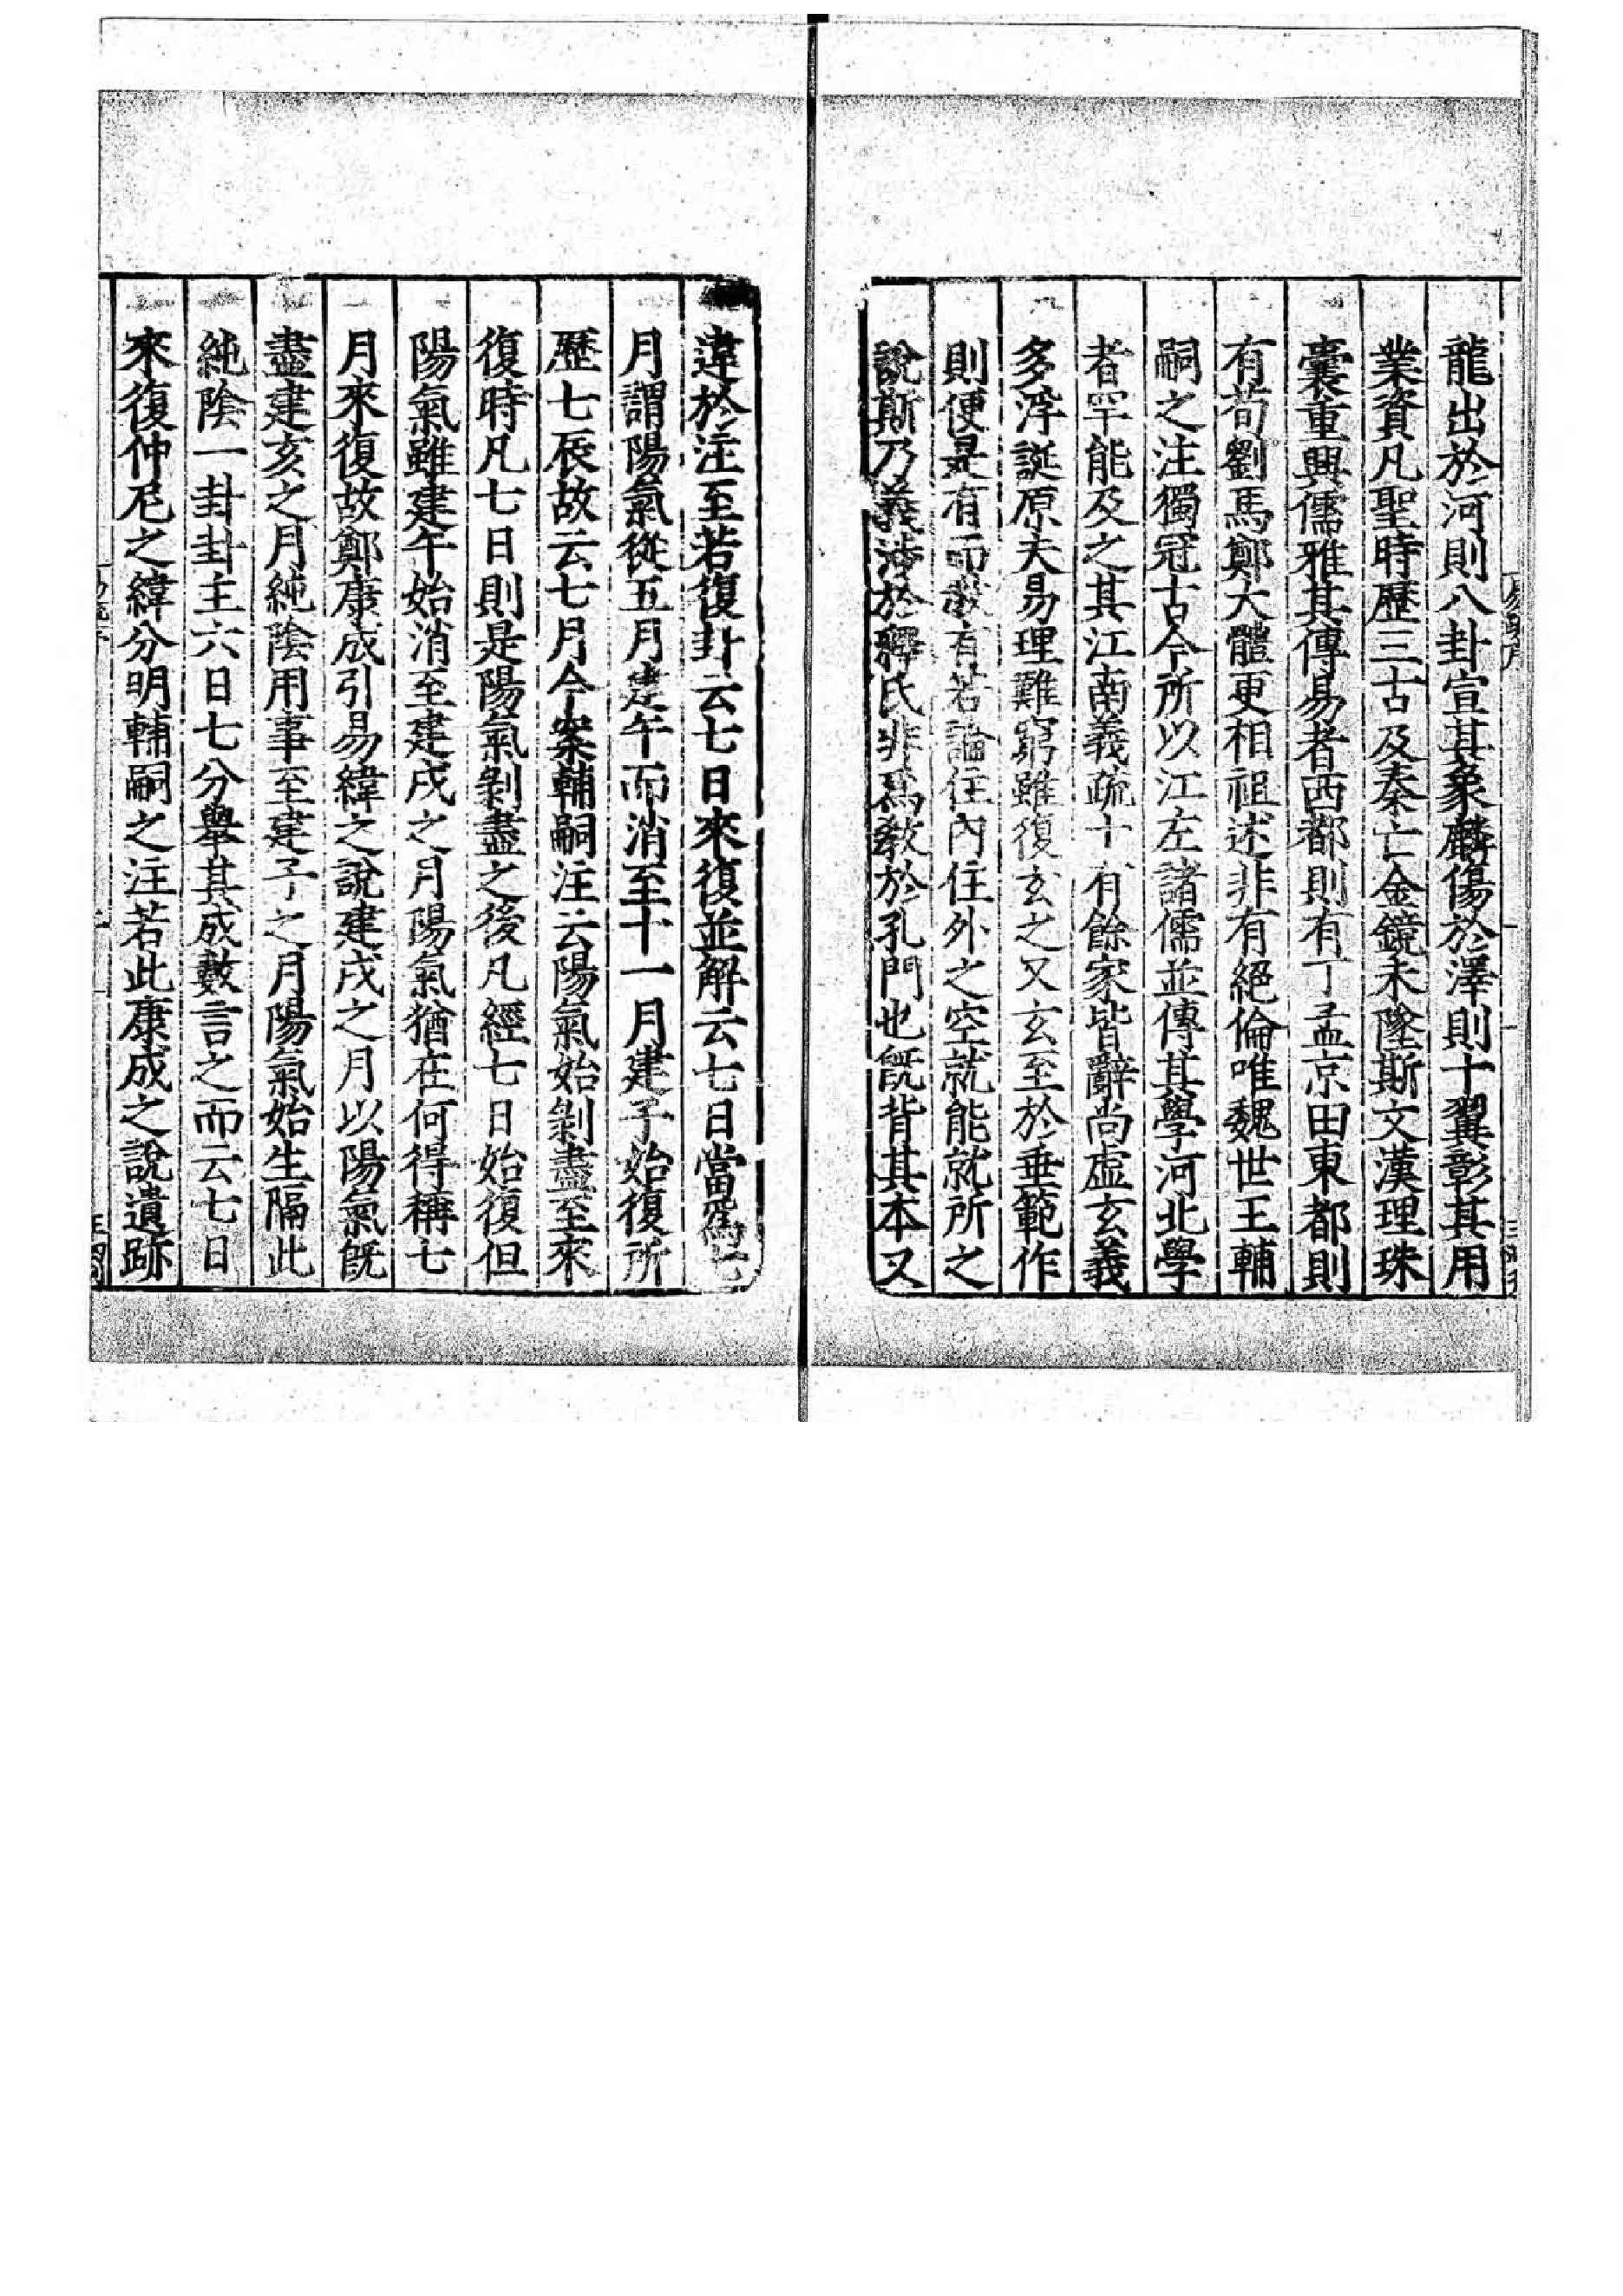 龍出於河則八卦宣其象麟傷於澤則十翼彰其用
業資凡聖時歷三古及秦亡金鏡未墜斯文漢理珠
囊重興儒雅其傳易者西都則有丁孟京田東都則
有荀劉馬鄭大體更相祖述非有絕倫唯魏世王輔
嗣之注獨冠古今所以江左諸儒並傳其學河北學
者罕能及之其江南義疏十有餘家皆辭尚虛玄義
多浮誕原夫易理難窮雖復玄之又玄至於垂範作
則便是有而教有若論住內住外之空就能就所之
說斯乃義涉於釋氏非爲教於孔門也旣背其本又
違於注至若復卦云七日來復並解云七日當爲七
月謂陽氣從五月建午而消至十一月建子始復所
歷七辰故云七月今案輔嗣注云陽氣始剝盡至來
復時凡七日則是陽氣剝盡之後凡經七日始復但
陽氣雖建午始消至建戌之月陽氣猶在何得稱七
月來復故鄭康成引易緯之說建戌之月以陽氣旣
盡建亥之月純陰用事至建子之月陽氣始生隔此
純陰一卦卦主六日七分舉其成數言之而云七日
來復仲尼之緯分明輔嗣之注若此康成之說遺跡